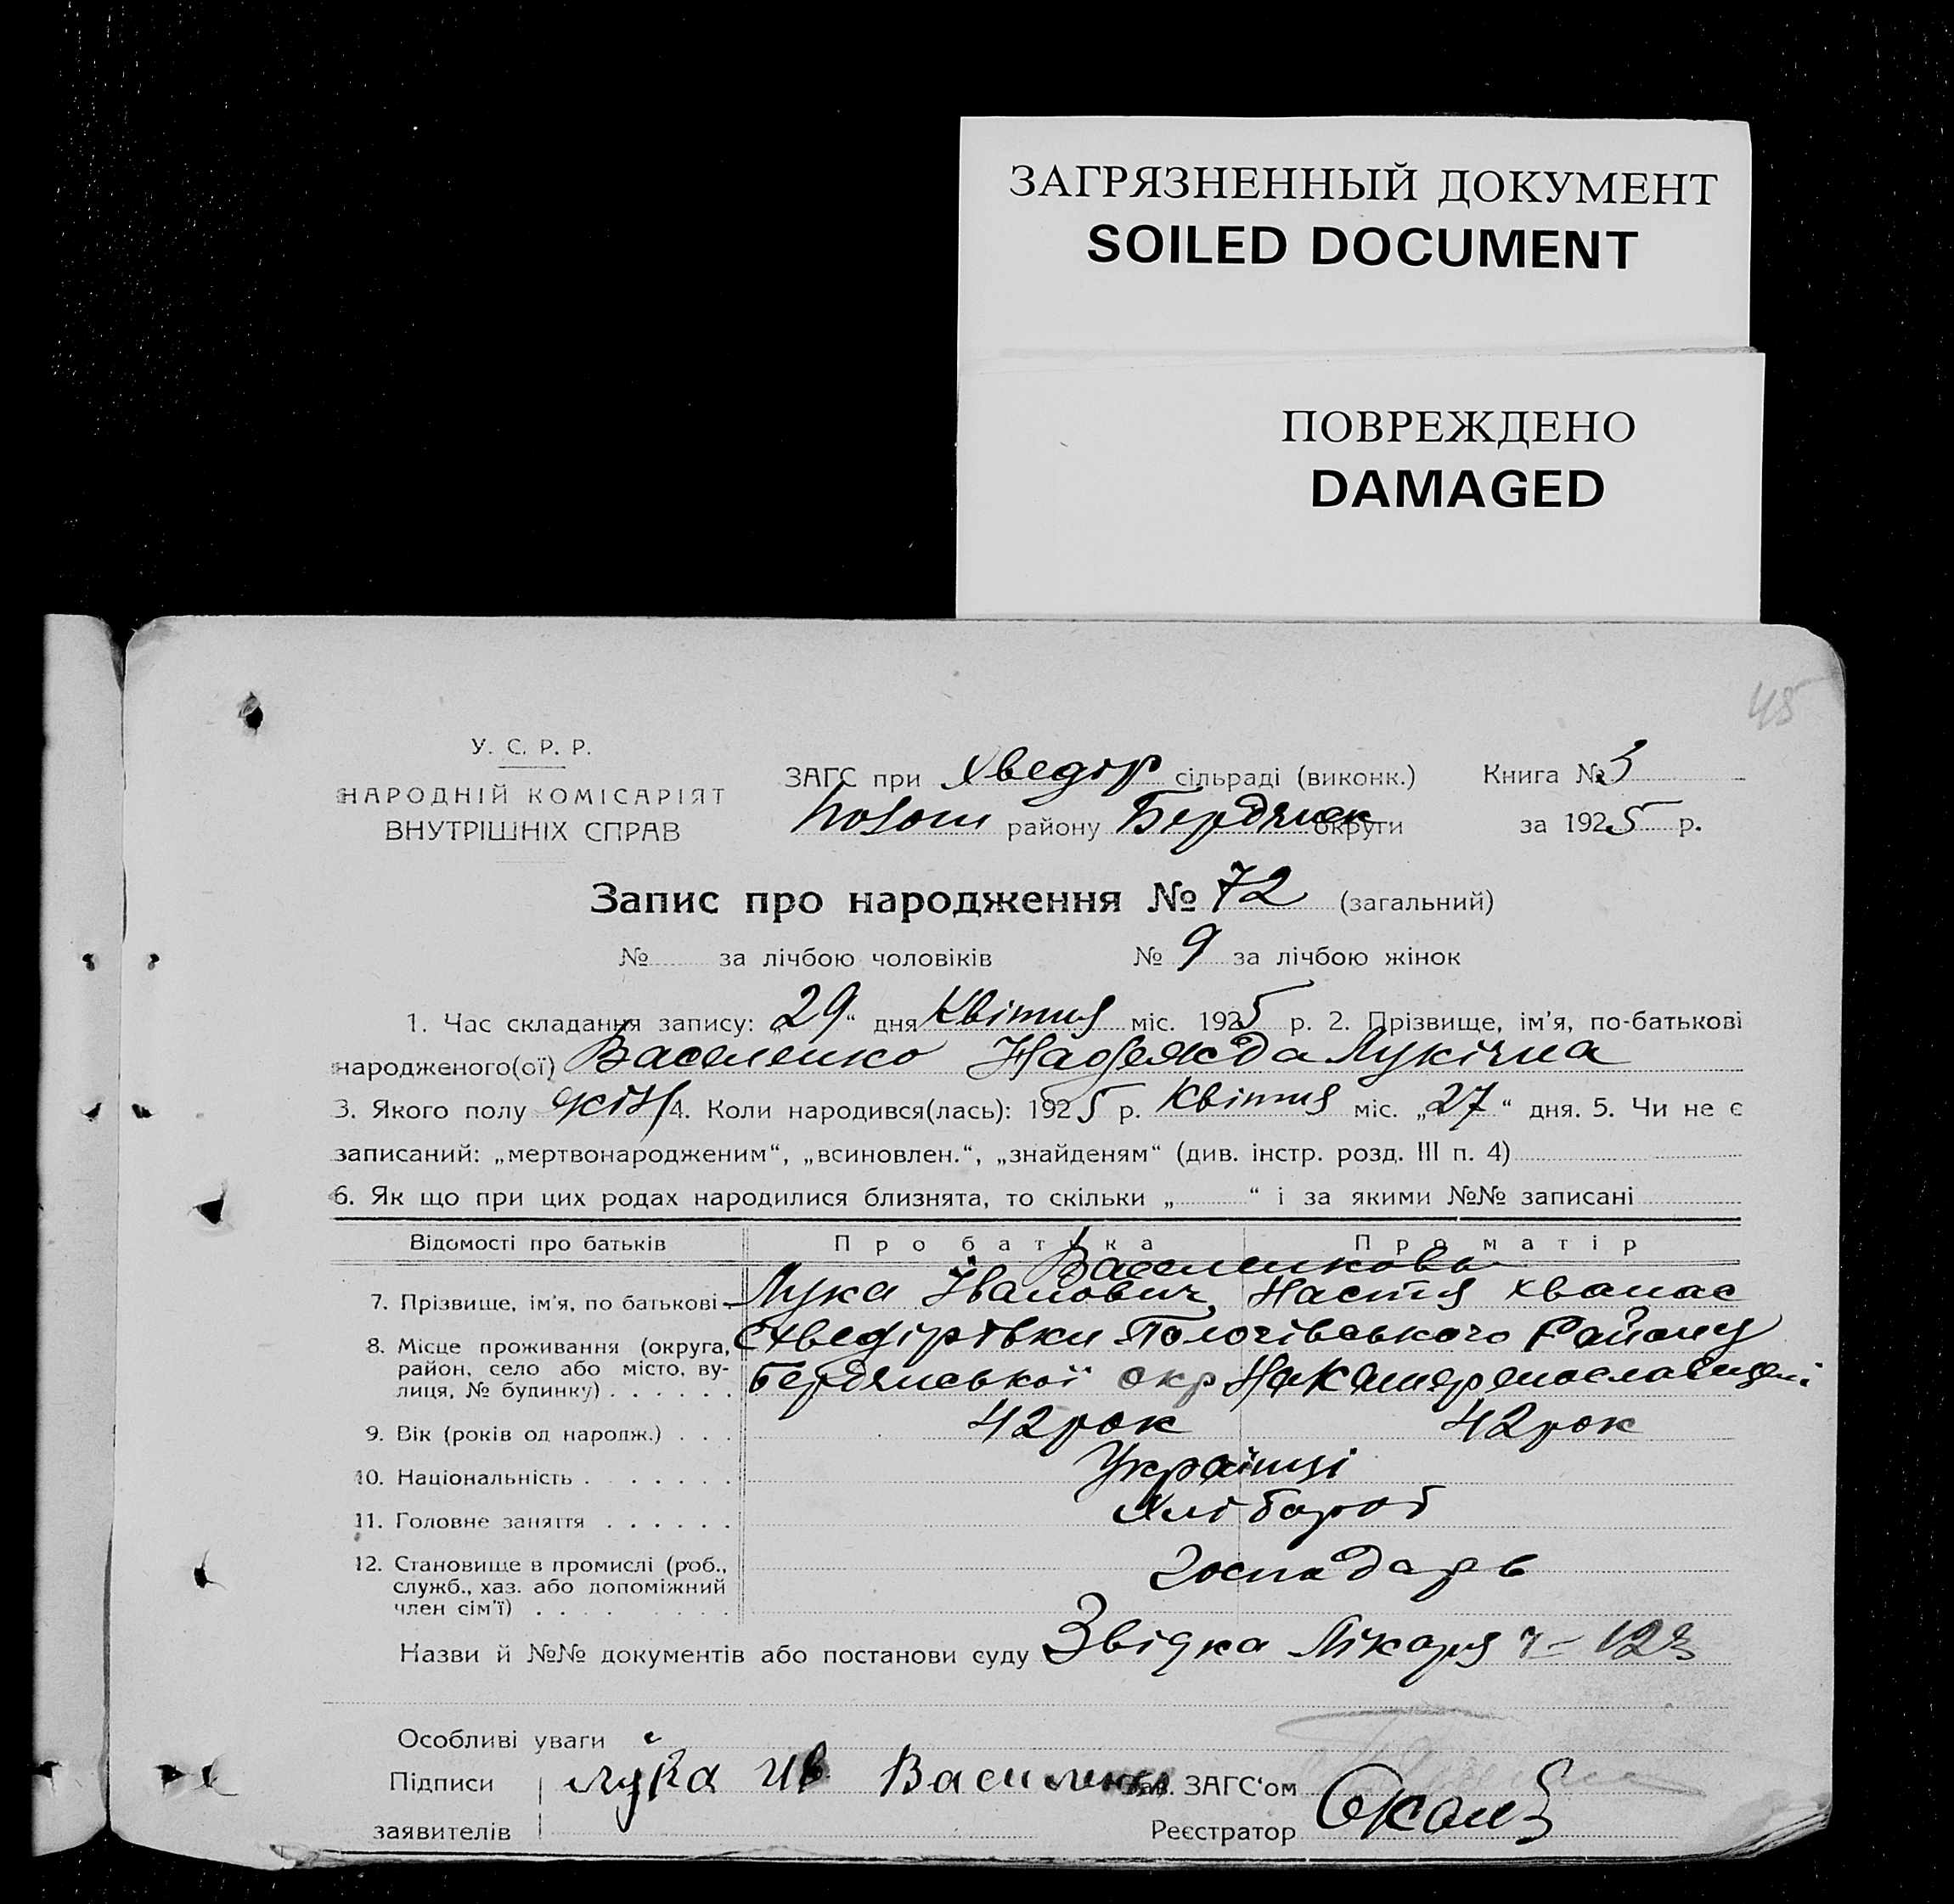 ЗАГРЯЗНЕННЫЙ ДОКУМЕНТ
SOILED DOCUMENT
ПОВРЕЖДЕНО
DAMAGED
45
У. С. Р. Р.
НАРОДНІЙ КОМІСАРІЯТ
ВНУТРІШНІХ СПРАВ
ЗАГС при Хведір сільраді (виконк.) Книга № 3
району Бердянск округи за 1925 р.
Запис про народження № 72 (загальний)
№ за лічбою чоловіків № 9 за лічбою жінок
1. Час складання запису: „29“ дня Квітня міс. 1925 р. 2. Прізвище, ім'я, по-батькові
народженого(ої) Василенко Надежда Лукічна
3. Якого полу жін 4. Коли народився(лась): 1925 р. Квітня міс. „27“ дня. 5. Чи не є
записаний: „мертвонародженим“, „всиновлен.“, „знайденям“ (див. інстр. розд. III п. 4)
6. Як що при цих родах народилися близнята, то скільки „ “ і за якими №№ записані
Відомості про батьків Про батька Про матір
Василенкови
7. Прізвище, ім'я, по батькові Лука Іванович, Настя Хванас
8. Місце проживання (округа, район, село або місто, вулиця, № будинку) С Хведірівки Пологівського Району
Бердянської окр
9. Вік (років од нароdж.) 42 рок 42 рок
10. Національність Українці
11. Головне заняття Хлібороб
12. Становище в промислі (роб., служб., хаз. або допоміжний член сім'ї) Господарь
Назви й №№ документів або постанови суду Звідка Лікаря ч = 123
Особливі уваги
Підписи Лука Ив Василенко Зав. ЗАГС'ом
заявителів Реєстратор